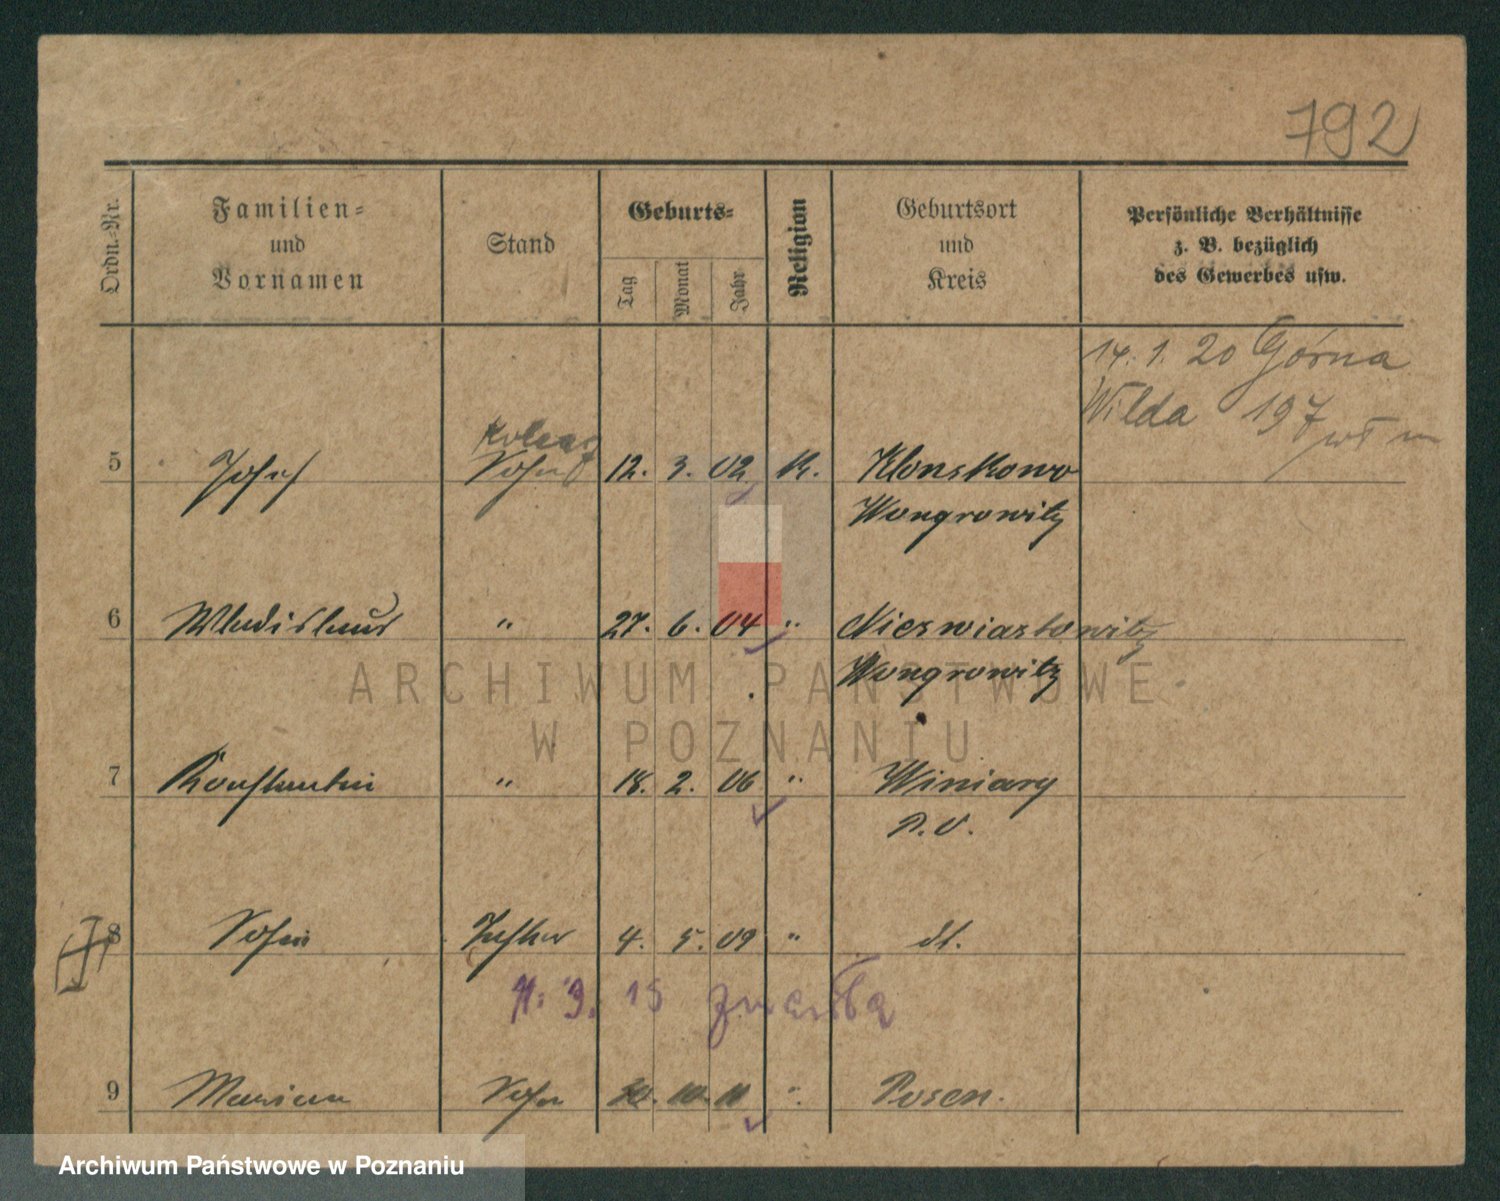 792
Ordn.-Nr.
Familien-
und
Vornamen
Stand
Geburts-
Tag
Monat
Jahr
Religion
Geburtsort
und
Kreis
Persönliche Verhältnisse
z. B. bezüglich
des Gewerbes usw.
14. 1. 20 Górna
Wilda 197
5 Josef Sohn 12. 3. 02 K. Klonskowo
Wongrowitz
6 Wladislaus " 27. 6. 04 " Nieswiastowitz
Wongrowitz
ARCHIWUM PAŃSTWOWE
W POZNANIU
7 Konstantin " 18. 2. 06 " Winiary
P. O.
8 Sofie Tochter 4. 5. 09 " dt.
11. 3. 15 zmarła
9 Marian Sohn 30. 10. 11 " Posen.
Archiwum Państwowe w Poznaniu